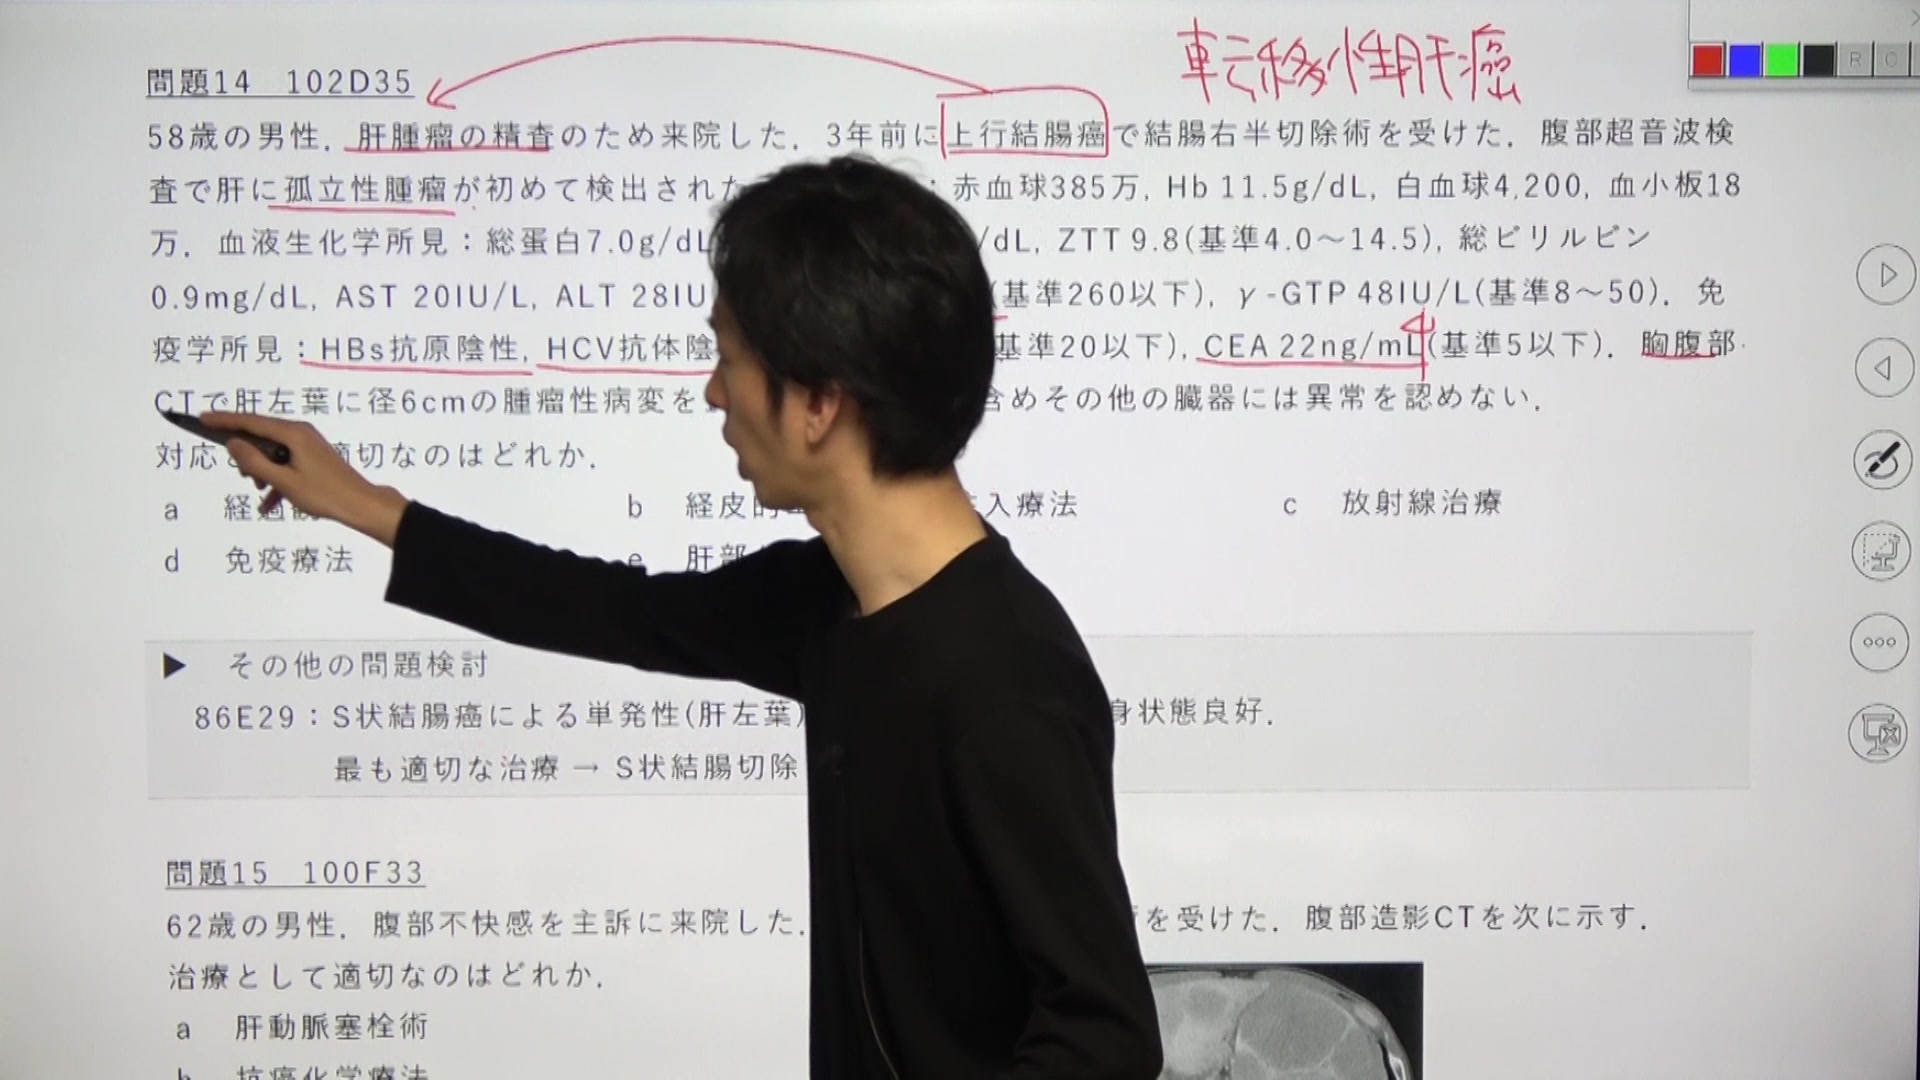 転移性肝癌
問題14 102D35
58歳の男性．肝腫瘤の精査のため来院した．3年前に上行結腸癌で結腸右半切除術を受けた．腹部超音波検
査で肝に孤立性腫瘤が初めて検出された：赤血球385万, Hb 11.5g/dL, 白血球4,200, 血小板18
万．血液生化学所見：総蛋白7.0g/dL /dL, ZTT 9.8(基準4.0〜14.5), 総ビリルビン
0.9mg/dL, AST 20IU/L, ALT 28IU (基準260以下), γ-GTP 48IU/L(基準8〜50)．免
疫学所見：HBs抗原陰性, HCV抗体陰 基準20以下), CEA 22ng/mL(基準5以下)．胸腹部
CTで肝左葉に径6cmの腫瘤性病変を 含めその他の臓器には異常を認めない．
対応 適切なのはどれか．
a 経過 b 経皮的 入療法 c 放射線治療
d 免疫療法 e 肝部
▶ その他の問題検討
86E29：S状結腸癌による単発性(肝左葉) 身状態良好．
最も適切な治療 → S状結腸切除
問題15 100F33
62歳の男性．腹部不快感を主訴に来院した． を受けた．腹部造影CTを次に示す．
治療として適切なのはどれか．
a 肝動脈塞栓術
b 抗癌化学療法
R